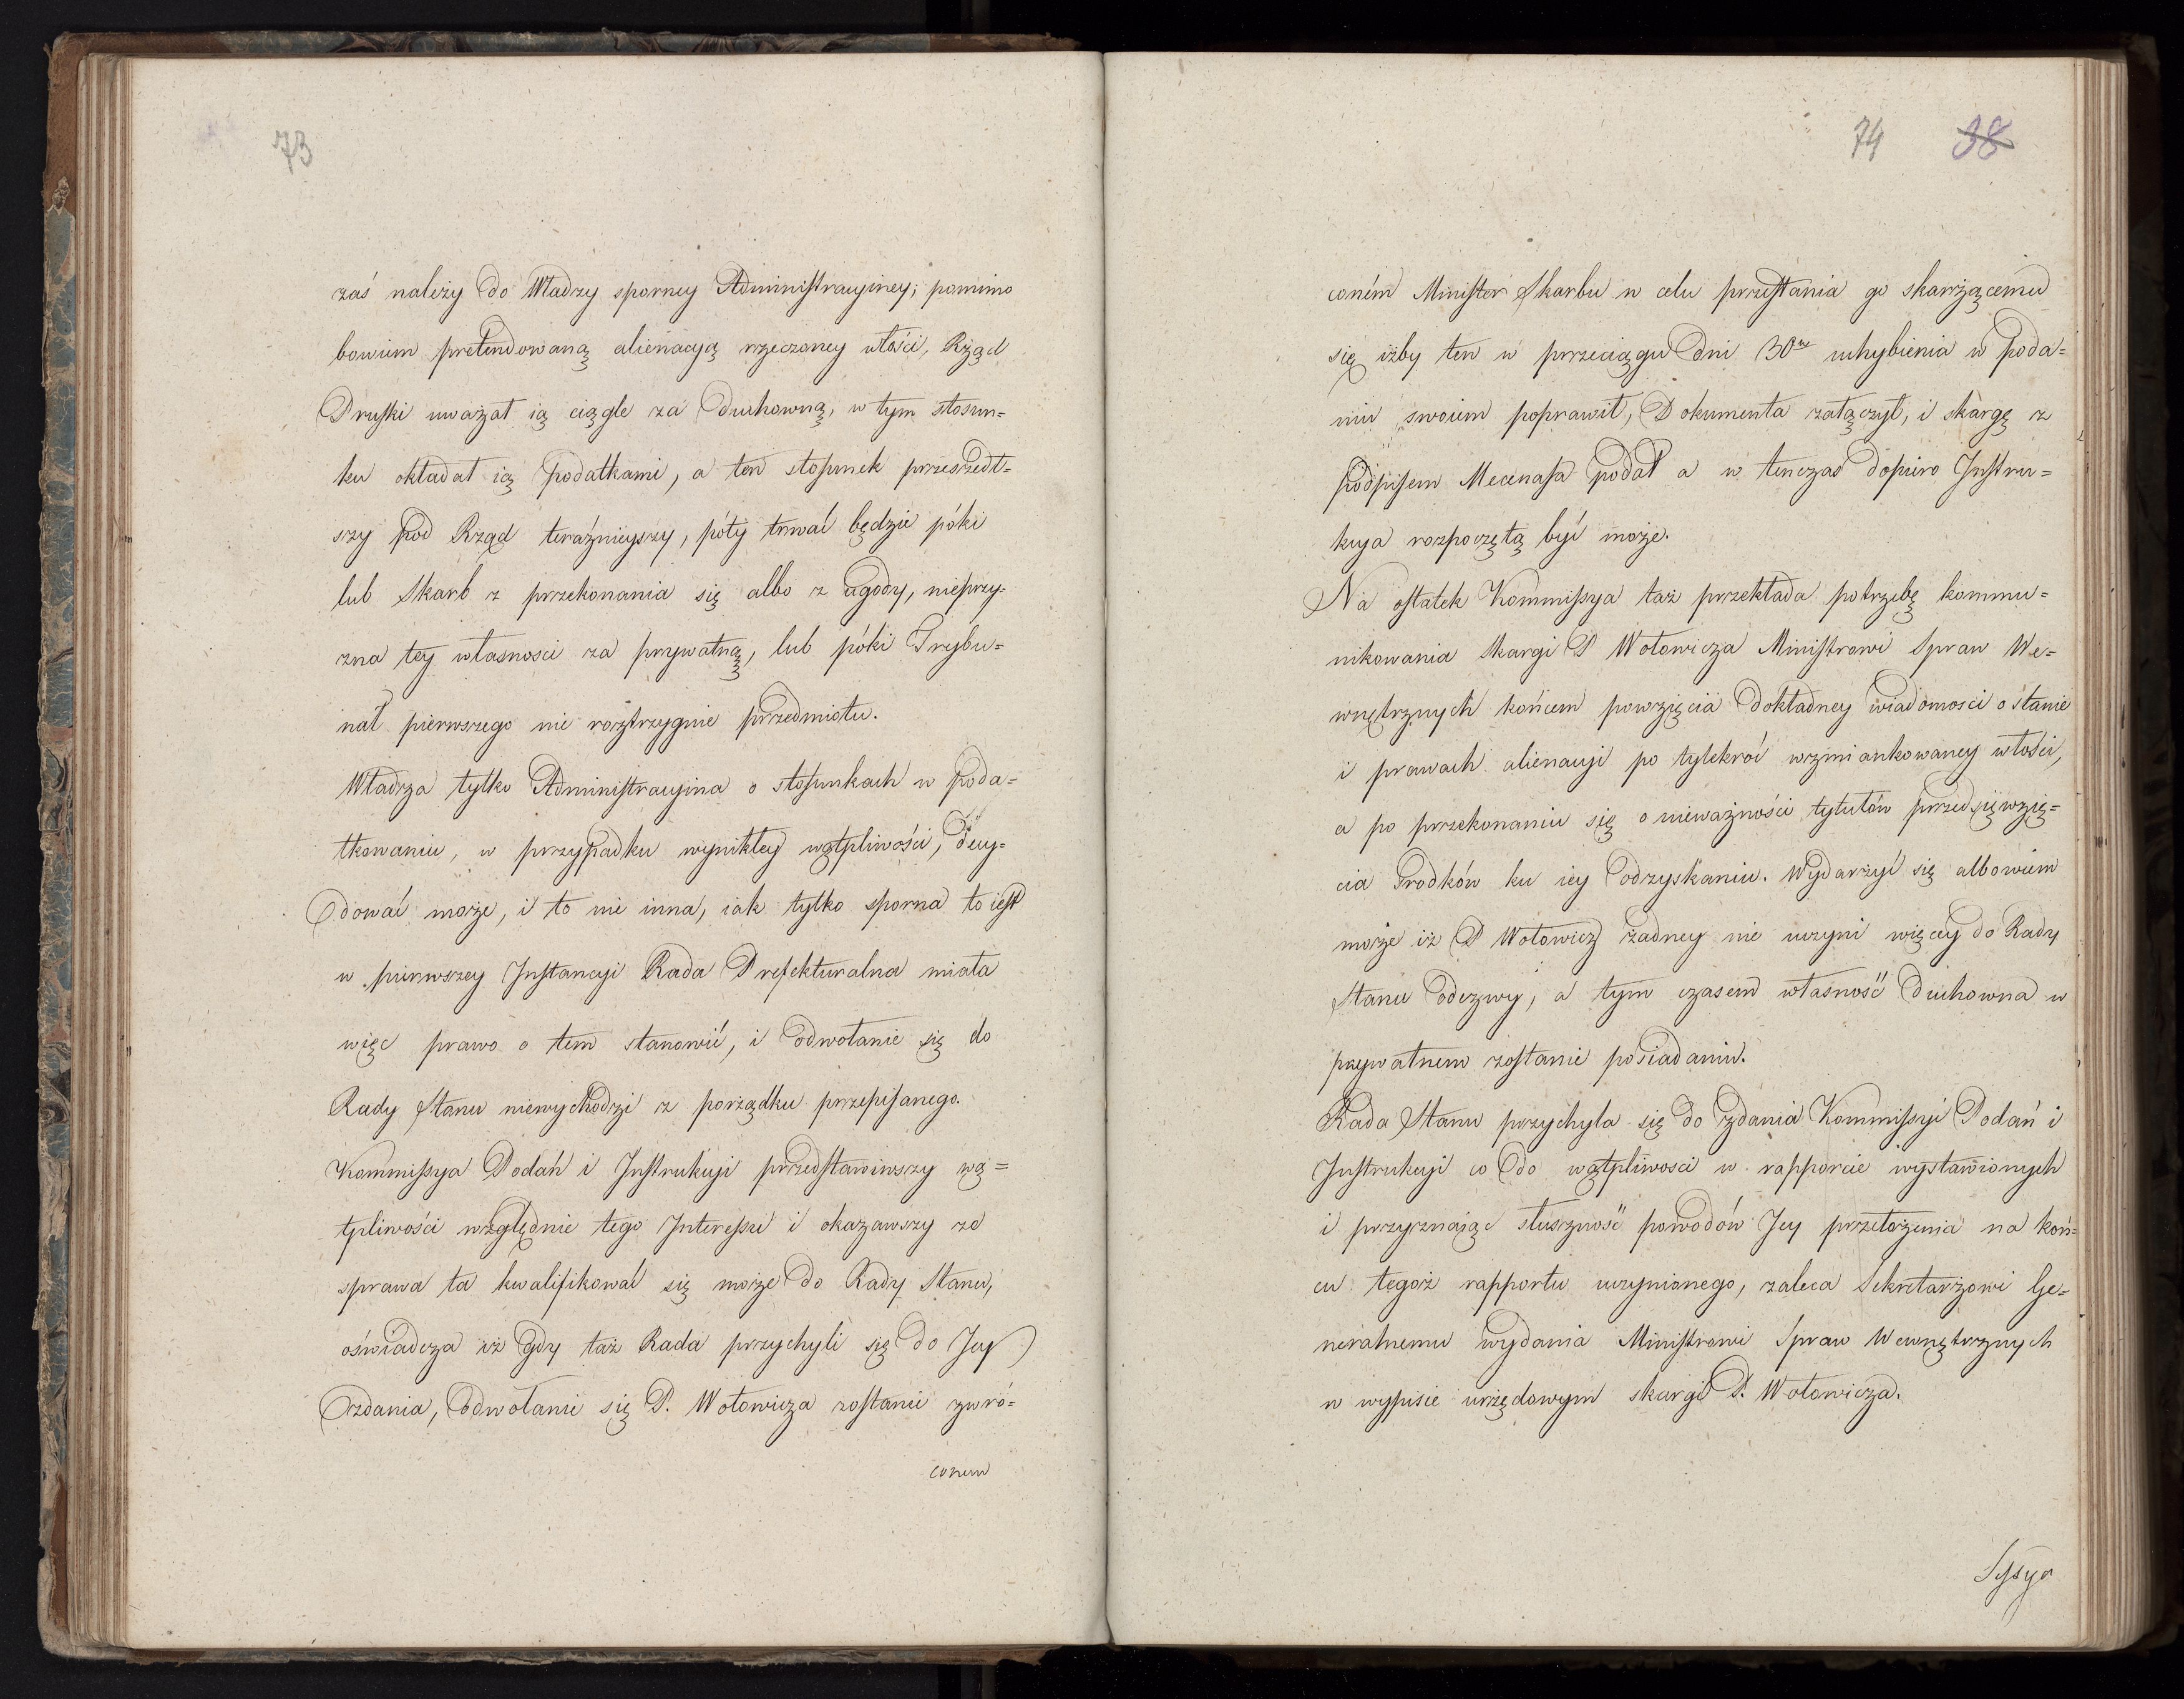 73
zaś należy do Władzy sporney Administracyiney; pomimo
bowiem pretendowaną alienacyą rzeczoney włości, Rząd
Pruski uważał ią ciągle za Duchowną, w tym stosun=
ku okładał ią podatkami, a ten stosunek przeszedł=
szy pod Rząd teraźnieyszy, póty trwać będzie póki
lub Skarb z przekonania się albo z ugody, nieprzy-
zna tey własnosci za prywatną, lub póki Trybu=
nał pierwszego nie rozstrzygnie przedmiotu.
Władza tylko Administracyina o stosunkach w poda=
tkowaniu, w przypadku wynikłey wątpliwości, decy=
dować może, i to nie inna, iak tylko sporna to iest
w pierwszey Instancyi Rada Prefekturalna miała
więc prawo o tem stanowić, i odwołanie się do
Rady Stanu niewychodzi z porządku przepisanego.
Kommissya Podań i Instrukcyi przedstawiwszy wą=
tpliwości względnie tego Interessu i okazawszy że
sprawa ta kwalifikować się może do Rady Stanu,
oświadcza iż gdy taż Rada przychyli się do Jey
zdania, odwołanie się P. Wołowicza zostanie zwró=
conem
74 38
coném Minister Skarbu w celu przesłania go skarżącemu
się iżby ten w przeciągu Dni 30tu uchybienia w poda=
niu swoiem poprawił, Dokumenta załączył, i skargę z
podpisem Mecenasa podał a w tenczas dopiero Instru=
kcya rozpoczętą być może.
Na ostatek Kommissya taż przekłada potrzebę kommu=
nikowania skargi P Wołowicza Ministrowi Spraw We=
wnętrznych końcem powzięcia dokładney wiadomosci o stanie
i prawach alienacyi po tylekroć wzmiankowaney włości,
a po przekonaniu się o nieważności tytułów przedsięwzię=
cia srodków ku iey odzyskaniu. Wydarzyć się albowiem
może iż P Wołowicz żadney nie uczyni więcey do Rady
Stanu odezwy, a tym czasem własność duchowna w
prywatnem zostanie posiadaniu.
Rada Stanu przychyla się do zdania Kommissyi Podań i
Instrukcyi co do wątpliwosci w rapporcie wystawionych
i przyznaiąc słuszność powodów Jey przełożenia na koń=
cu tegoż rapportu uczynionego, zaleca Sekretarzowi Ge=
neralnemu wydania Ministrowi Spraw Wewnętrznych
w wypisie urzędowym skargi P. Wołowicza.
Sessya